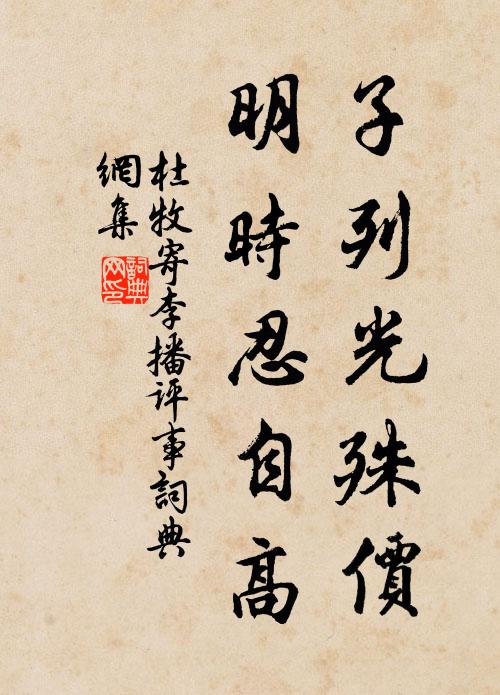 子列光殊價
明時忍自高
杜牧寄李播評事詞典
網集
詞典
网印